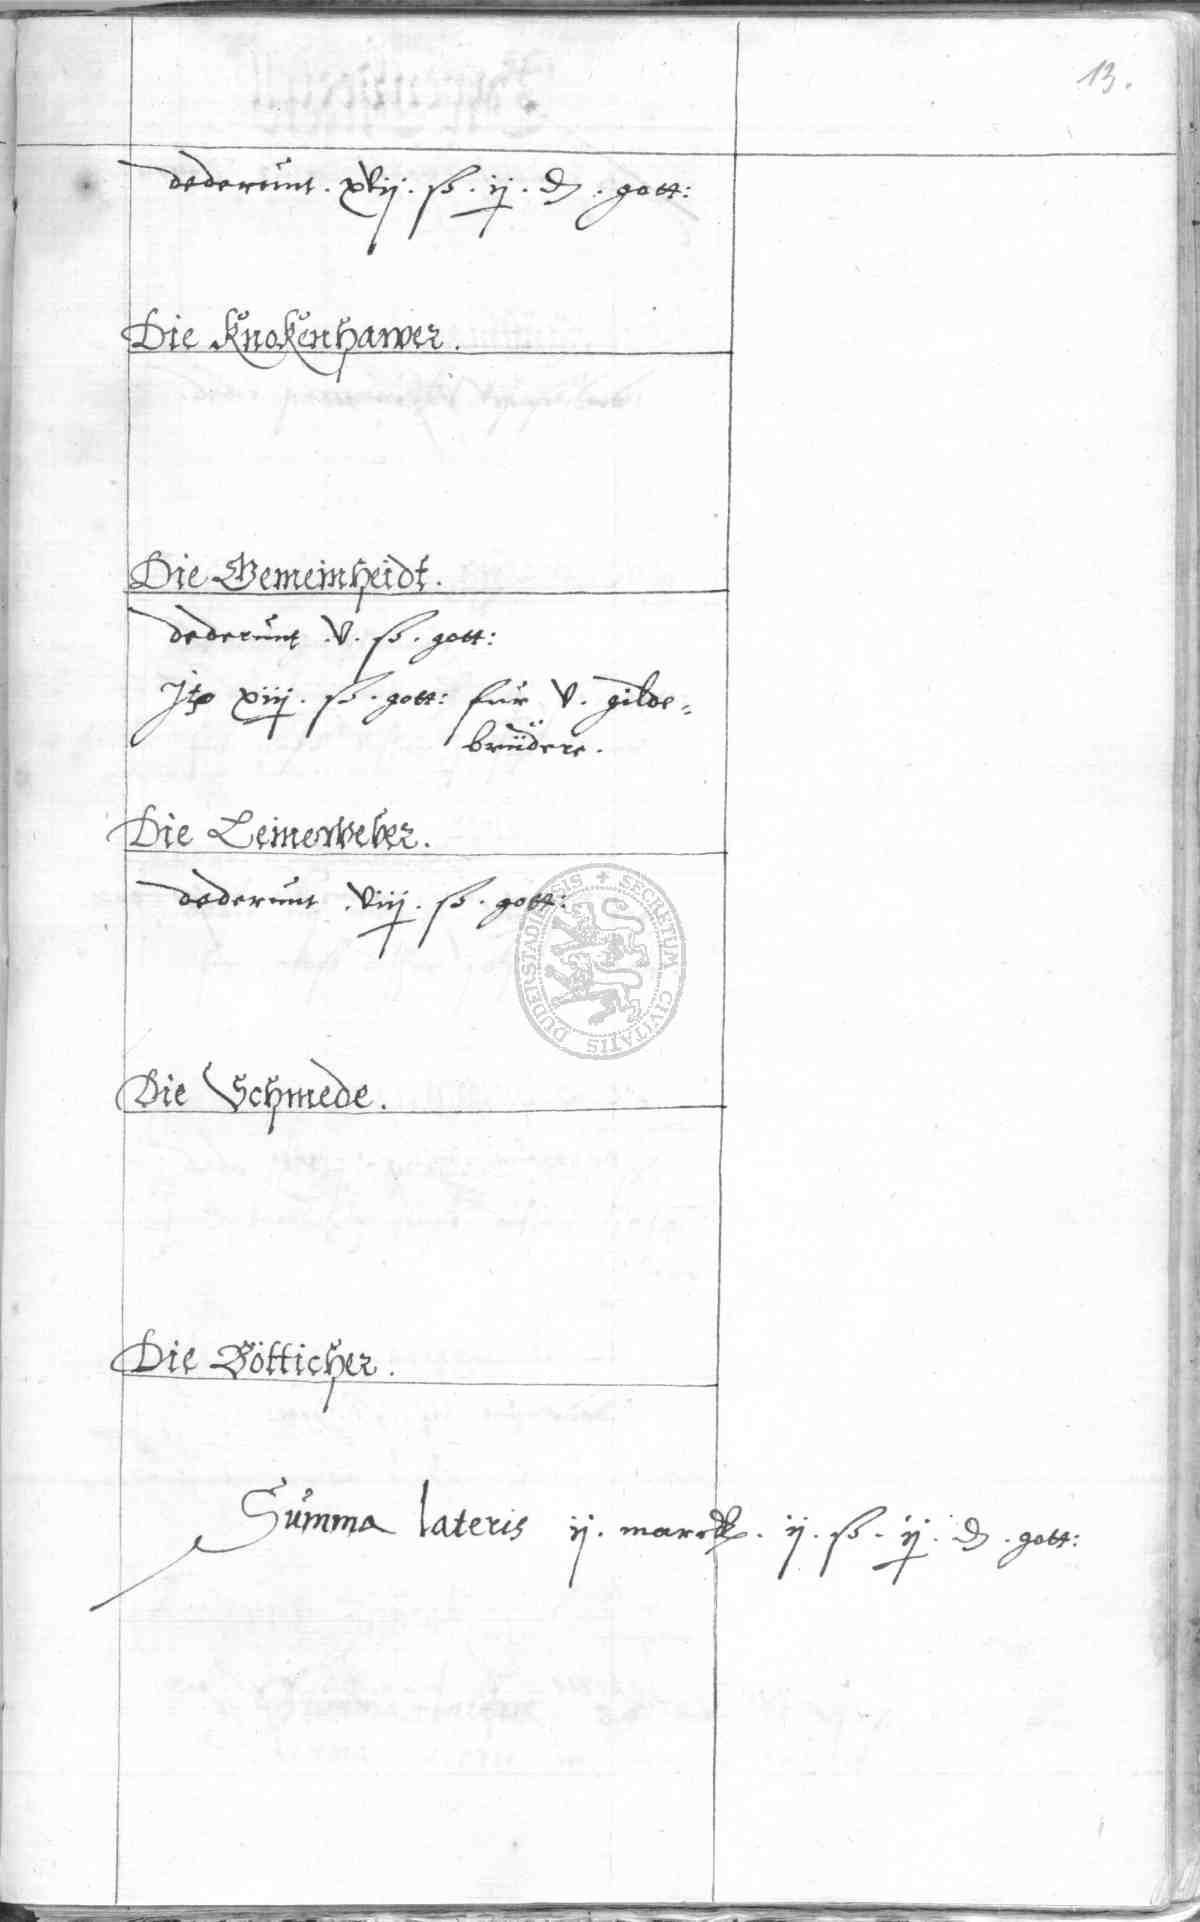 13.
dederunt . xvij . ß . ij . ₰ . gott:
Die Knokenhawer .
Die Gemeinheidt .
dederunt . v . ß . gott:
Itp xiij . ß . gott: fur v . gilde=
brüdere .
Die Leinerweber .
dederunt . viij . ß . gott:
SECRETUM CIVITATIS DUDERSTADIENSIS
Die Schmede .
Die Bötticher .
Summa lateris ij . marck . ij . ß . ij . ₰ . gott: